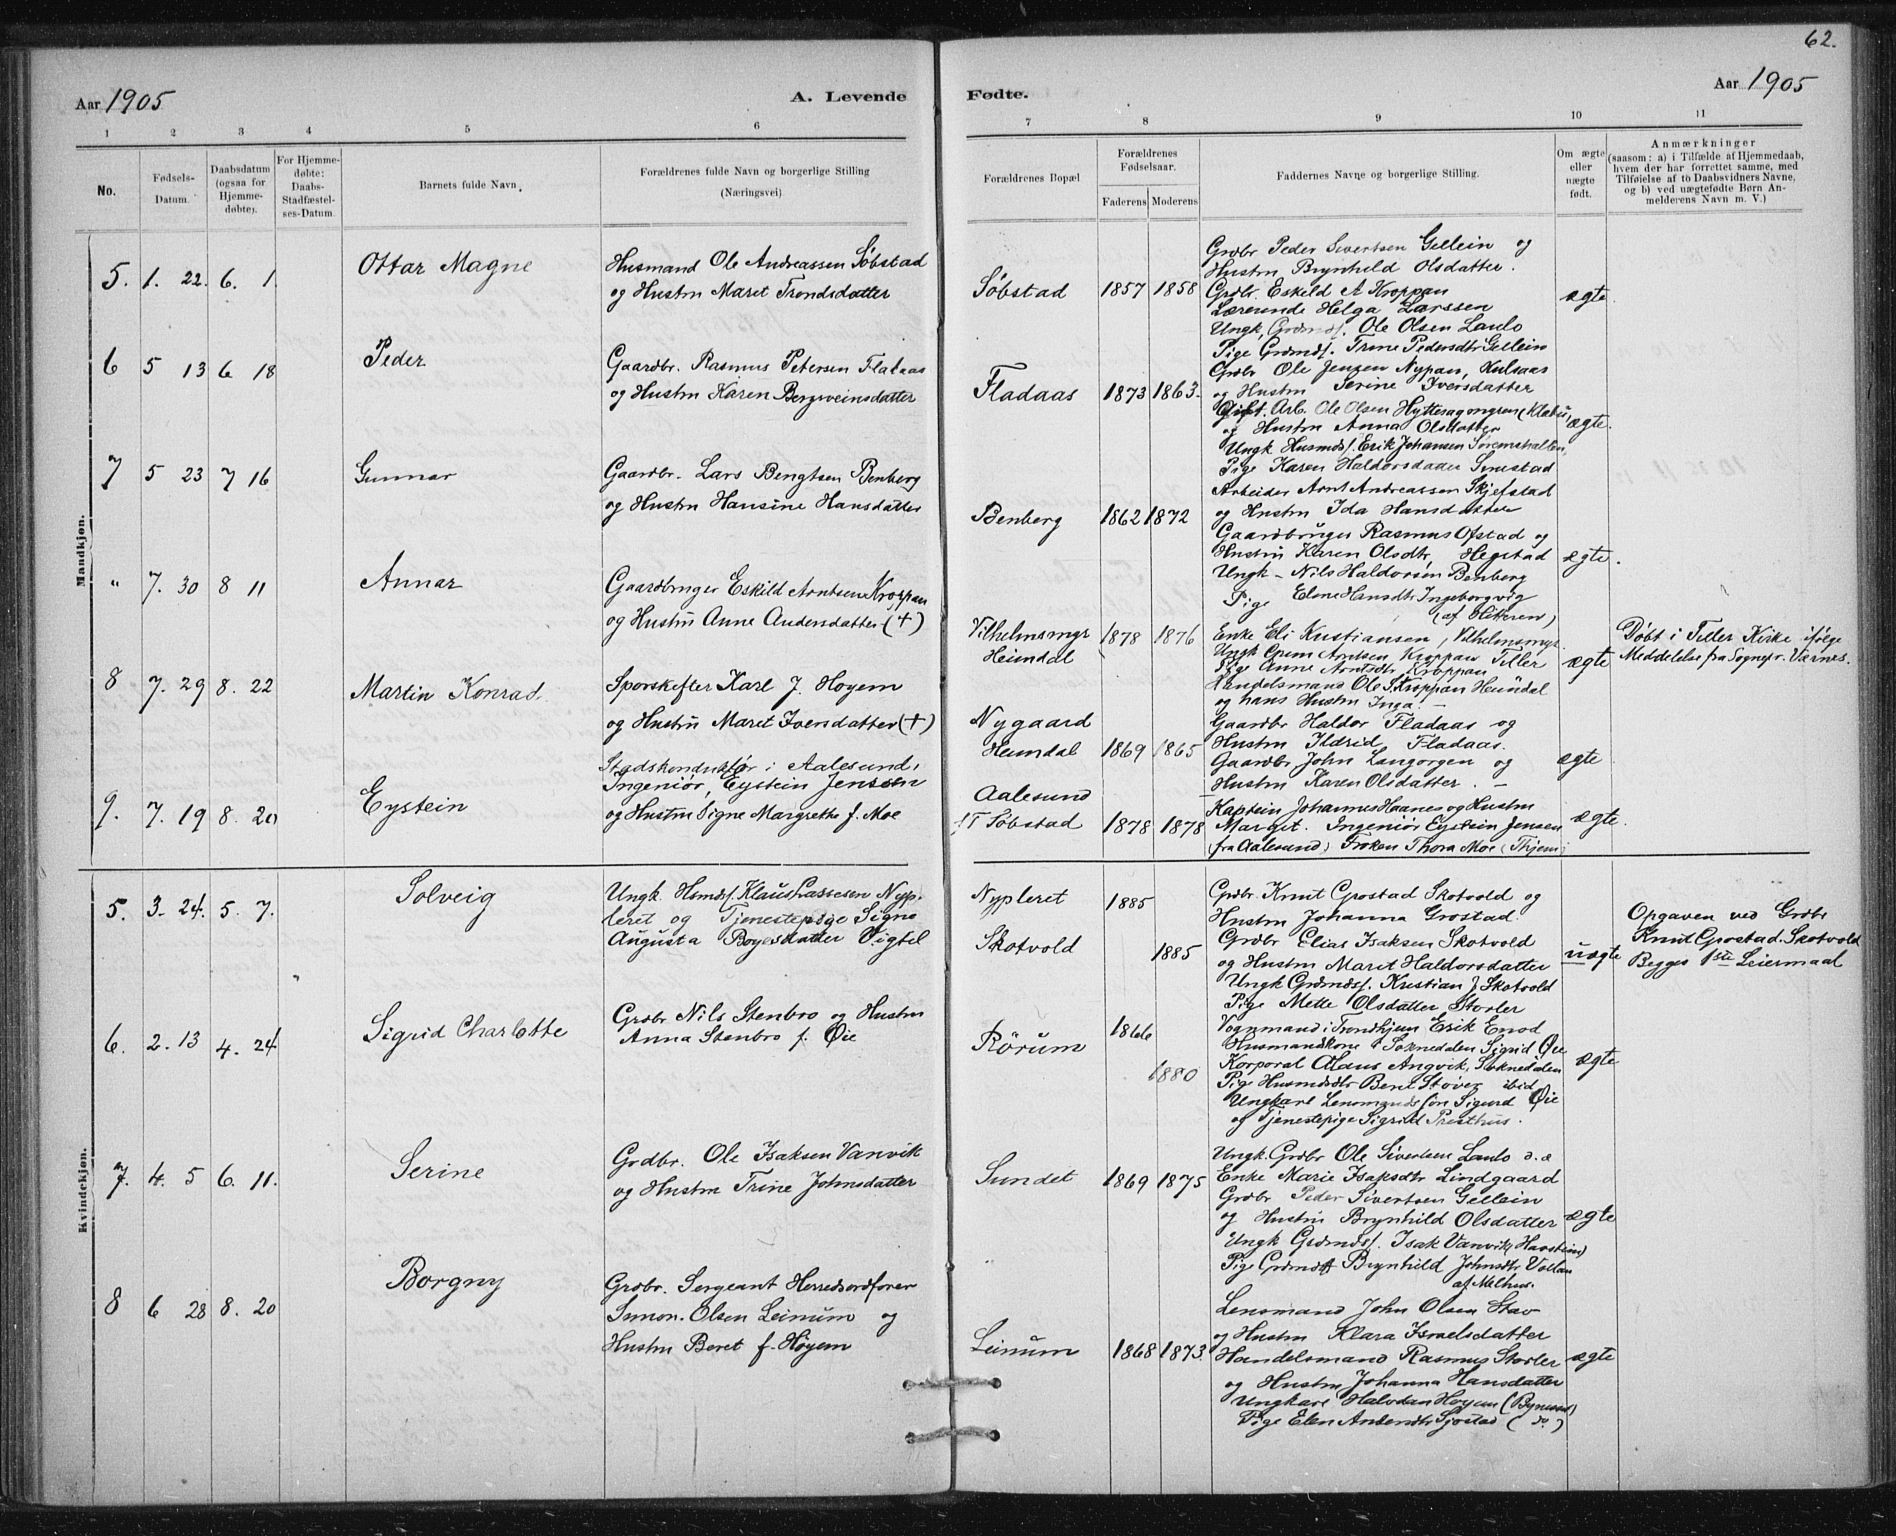 62.
Aar 1905
A. Levende
Fødte.
Aar 1905
1 2 3 4 5 6
7 8 9 10 11
No.
Fødsels-
Datum.
Daabsdatum
(ogsaa for
Hjemme-
døbte).
For Hjemme-
døbte:
Daabs-
Stadfæstel-
ses-Datum.
Barnets fulde Navn.
Forældrenes fulde Navn og borgerlige Stilling
(Næringsvei)
Forældrenes Bopæl
Forældrenes
Fødselsaar.
Faderens Moderens
Faddernes Navne og borgerlige Stilling.
Om ægte
eller
uægte
født.
Anmærkninger
(saasom: a) i Tilfælde af Hjemmedaab,
hvem der har forrettet samme, med
Tilføielse af to Daabsvidners Navne,
og b) ved uægtefødte Børn An-
melderens Navn m. V.)
Mandkjøn.
5. 1. 22. 6. 1 Ottar Magne
Husmand Ole Andreassen Søbstad
og Hustru Maret Trondsdatter
Søbstad 1857 1858
Grdbr Peder Sivertsen Gellein og
Hustru Brynhild Olsdatter.
Grdbr. Eskild A Kroppan
Lærerinde Helga Larssen
Ungk, Grdmds. Ole Olsen Laulo
Pige Grdmds. Trine Pedersdtr Gellein
ægte
6 5 13 6. 18 Peder
Gaardbr. Rasmus Petersen Flataas
og Hustru Karen Bergsveinsdatter
Fladaas 1873 1863.
Grdbr Ole Jensen Nypan,
og Hustru Serine Iversdatter
Gift. Arb. Ole Olsen (Klæbu)
og Hustru Anna Olsdatter
Ungk Husmds. Erik Johansen
Pige Karen Haldorsdatter
ægte.
7 5 23 7 16 Gunnar
Gaardbr. Lars Bengtsen Benberg
og Hustru Hansine Hansdatter
Benberg 1862 1872
Arbeider Arnt Andreassen Skjefstad
og Hustru Ida Hansdatter
Gaardbruger Rasmus Ofstad og
Hustru Karen Olsdtr Hegstad
Ungk - Nils Haldorsen Benberg
Pige Elen Hansdtr Ingeborgvig
(af Hitteren)
ægte.
" 7. 30 8 11 Annar
Gaardbruger Eskild Arntsen Kroppan
og Hustru Anne Andersdatter (+)
Vilhelmsmyr
Heimdal
1878 1876
Enke Eli Kristiansen, Vilhelmsmyr
Ungk Arntsen Kroppan Tiller
Pige Anne Arntsdtr Kroppan
Handelsmand Ole S. Kroppan Heimdal
og hans Hustru Inga. -
ægte
Døbt i Tiller Kirke ifølge
Meddelelse fra Sognepr. Værnes.
8 7. 29 8. 22 Martin Konrad
Sporskifter Karl J. Høyem
og Hustru Maret Iversdatter (+)
Nygaard
Heimdal 1869 1865
Gaardbr Haldor Fladaas og
Hustru Ildrid Fladaas.
Gaardbr John Langørgen og
Hustru Karen Olsdatter. -
ægte
9. 7. 19 8. 20 Eystein
Stadskonduktør i Aalesund,
Ingeniør, Eystein Jensen
og Hustru Signe Margrethe f. Moe
Aalesund
f T Søbstad 1878 1878
Kaptein Johannes Haanes og Hustru
Marget. Ingeniør Eystein Jensen
(fra Aalesund) Frøken Thora Moe (Thjem)
ægte.
Kvindekjøn.
5. 3. 24. 5. 7. Solveig
Ungk. Hsmds. Klaus Lassesen Nyp-
leret og Tjenestepige Signe
Augusta Bøyesdatter Vigtil
Nypleret 1885
Skotvold 1885
Grdbr. Knut Grostad Skotvold og
Hustru Johanna Grostad.
Grdbr Elias Isaksen Skotvold
og Hustru Maret Haldorsdatter
Ungk Grdmds. Kristian J Skotvold
Pige Mette Olsdatter Storler
uægte
Opgaven ved Grdbr
Knut Grostad. Skotvold
Begges 1ste Leiermaal
6. 2. 13 4. 24 Sigrid Charlotte
Grdbr Nils Stenbro og Hustru
Anna Stenbro f. Øie
Rörum 1866
1880
Vognmand i Trondhjem Erik Emod
Husmandkone i Soknedalen Sigrid Øie
Korporal Claus Angvik, Soknedalen
Pige Husmdsdtr Beret Støver ibid
Ungkarl Lensmandssøn Sigurd Øie
og Tjenestepige Sigrid Presthus.
ægte
7. 4. 5 6. 11. Serine
Grdbr. Ole Isaksen Vanvik
og Hustru Trine Johnsdatter
Sundet 1869 1875
Ungk. Grdbr Ole Sivertsen Laulo
Enke Marie Isaksdtr Lindgaard
Grdbr Peder Sivertsen Gellein
og Hustru Brynhild Olsdatter
Ungk Grdmds. Isak Vanvik (Havstein)
Pige Grdmdsdt Brynhild Johnsdtr Vollan
af Melhus.
ægte
8 6 28 8. 20 Borgny
Grdbr. Sergeant Herredsordfører
Simon. Olsen Leinum og
Hustru Beret f. Høyem
Leinum 1868 1873
Lensmand John Olsen Stav
og Hustru Klara Israelsdatter
Handelsmand Rasmus Storler
og Hustru Johanna Hansdatter
Ungkarl Halvdan Høyem (Bynesset)
Pige Elen Andersdtr Sjøstad (do)
ægte